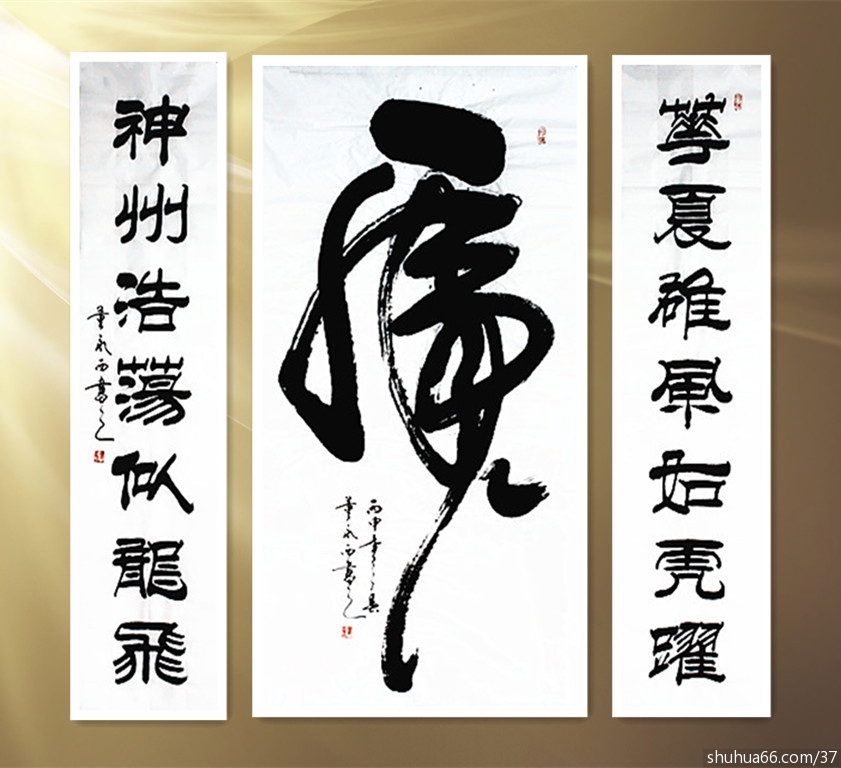 華夏雄風如虎躍
虎
丙申
神州浩蕩似龍飛
shuhua66.com/37